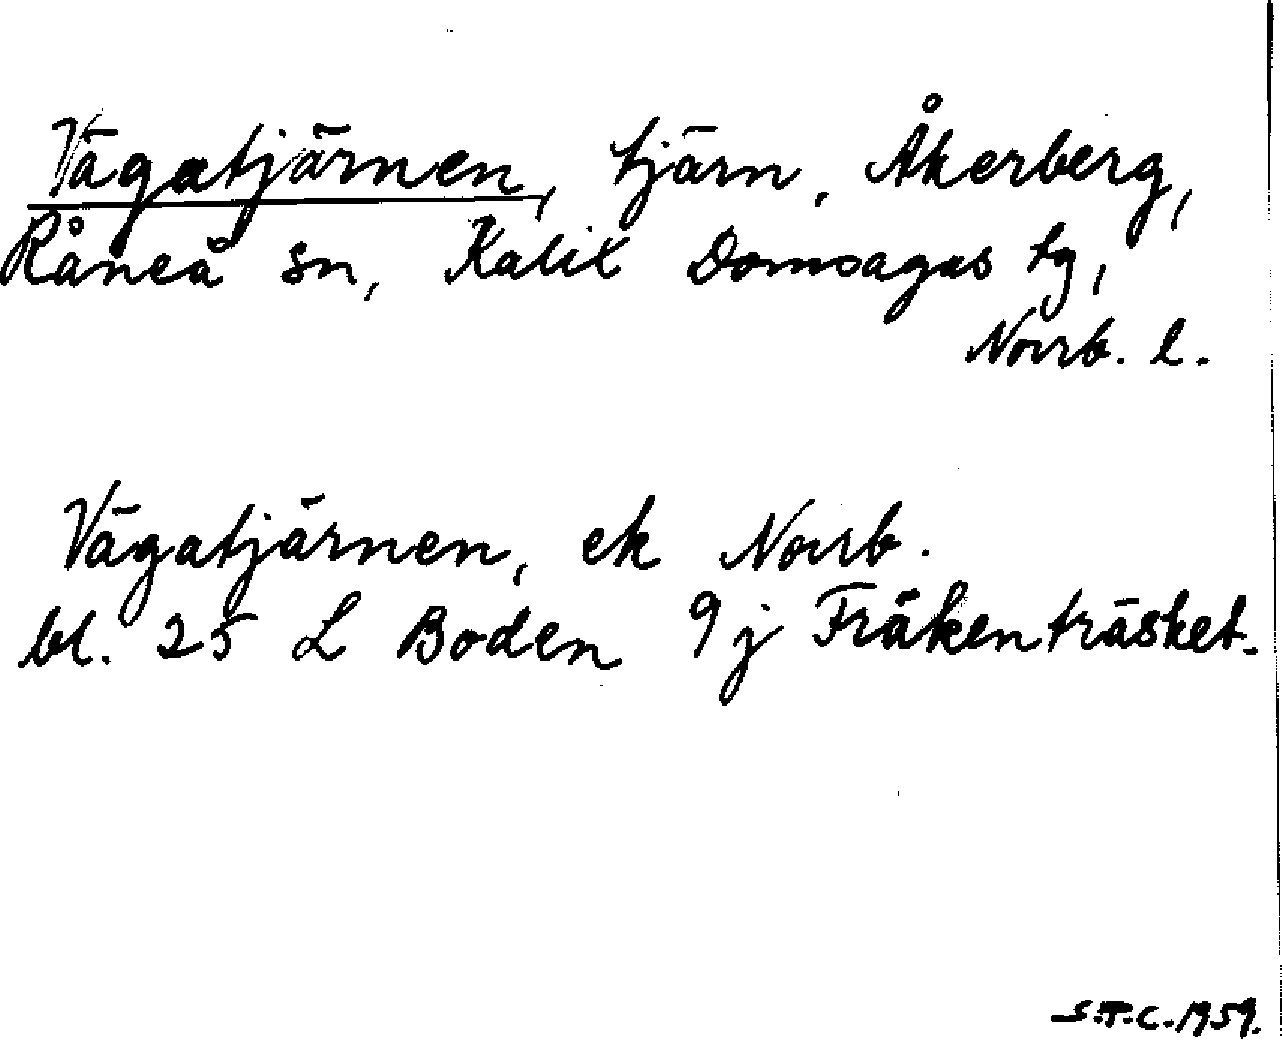 Vägatjärnen, tjärn, Åkerberg,
Råneå sn, Kalix Domsagas tg,
Norrb. l.
Vägatjärnen, ek Norrb.
bl. 25 L Boden 9 j Fräkenträsket.
S.T.C. 1959.